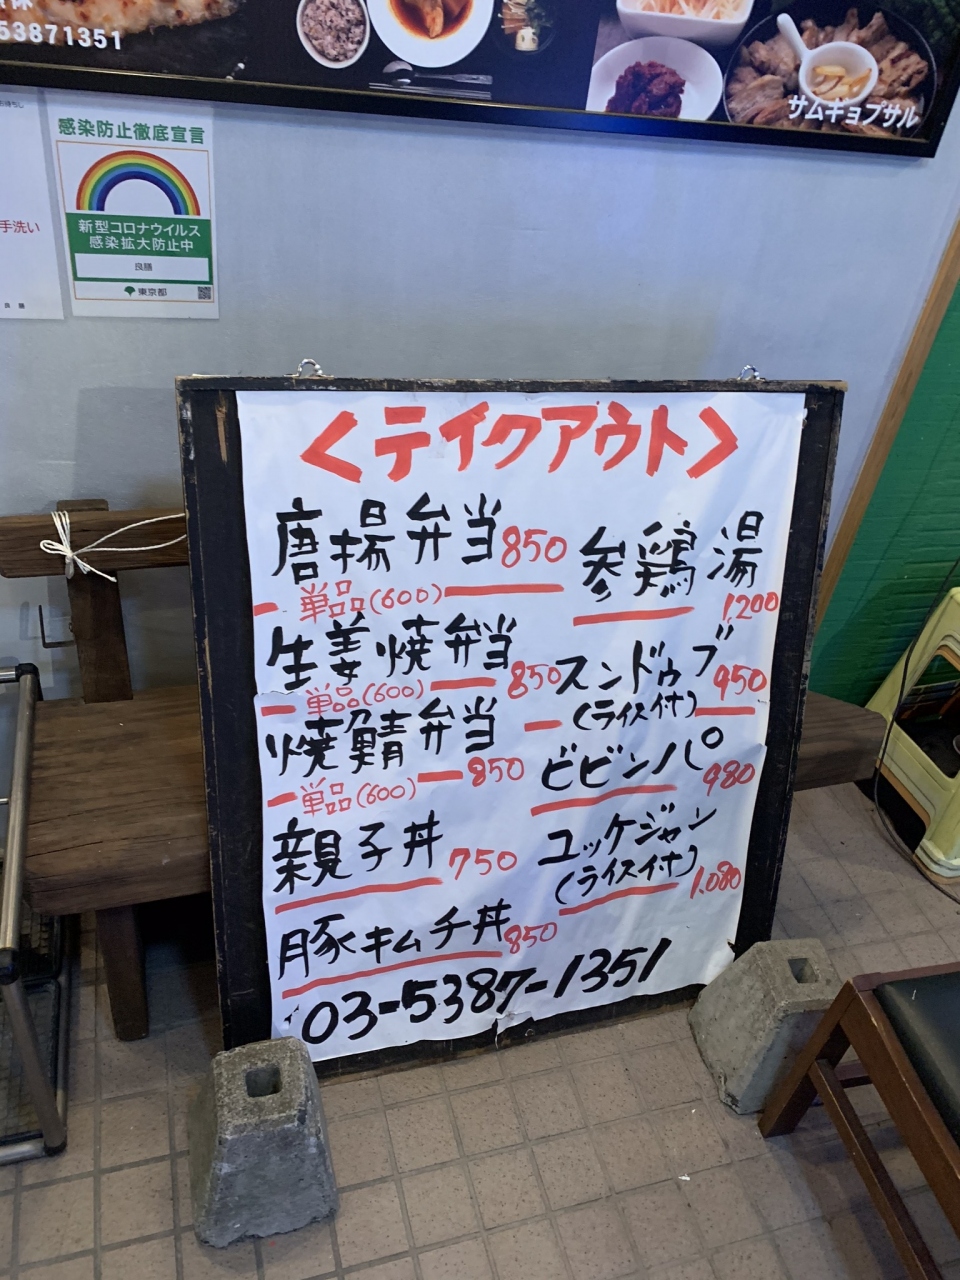 53871351
サムギョプサル
感染防止徹底宣言
新型コロナウイルス
感染拡大防止中
良膳
東京都
手洗い
良膳
<テイクアウト>
唐揚弁当850
単品(600)
生姜焼弁当850
単品(600)
焼鯖弁当850
単品(600)
親子丼750
豚キムチ丼850
参鶏湯
1200
スンドゥブ950
(ライス付)
ビビンパ980
ユッケジャン
(ライス付)1,080
03-5387-1351